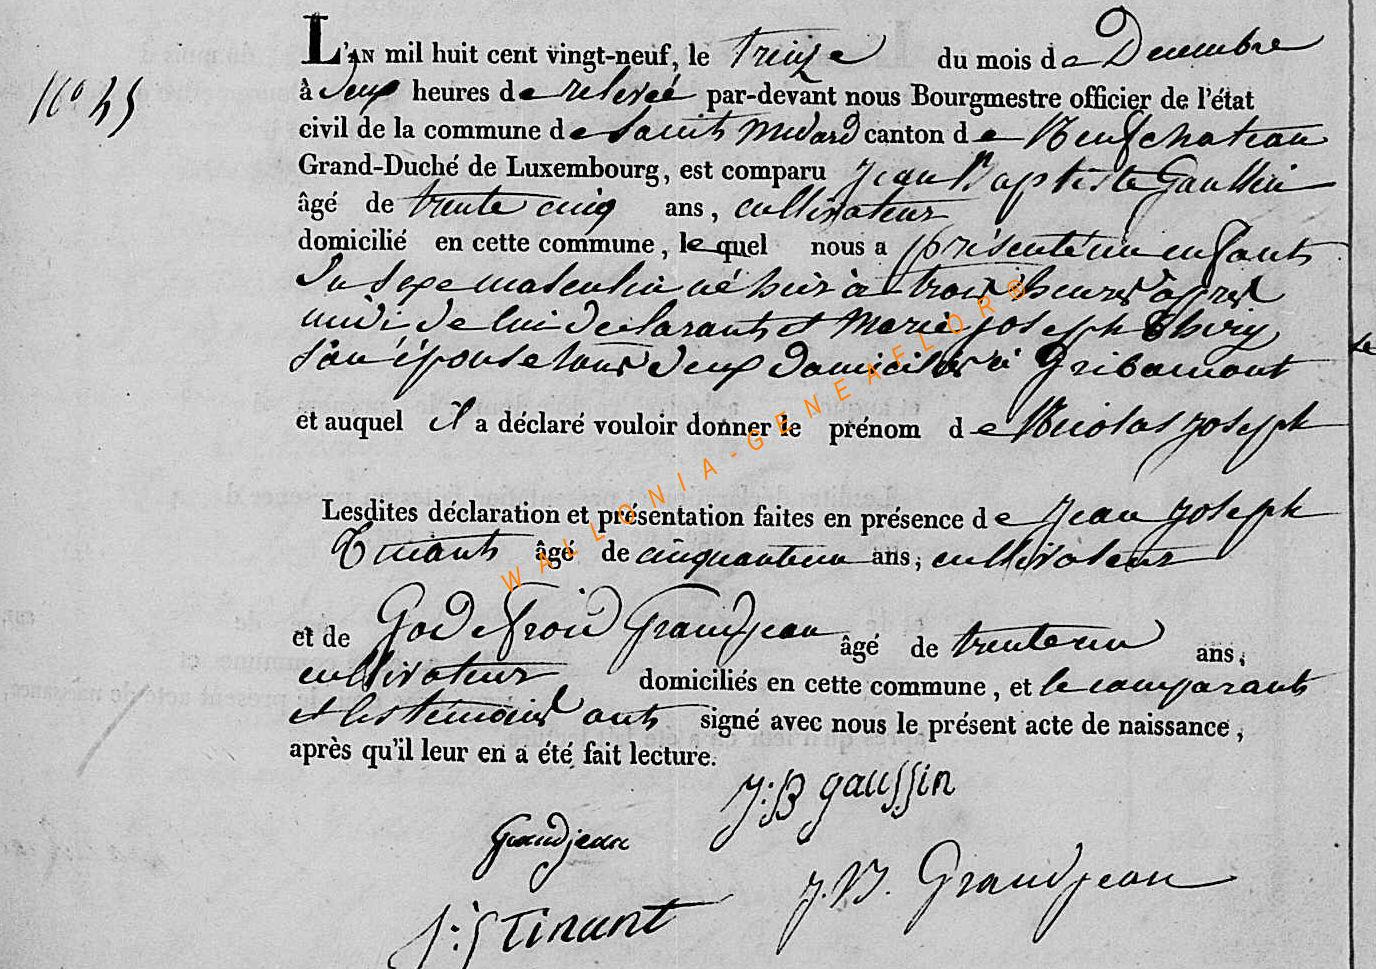 N° 45
L'AN mil huit cent vingt-neuf, le treize du mois de Decembre
à deux heures de relevée par-devant nous Bourgmestre officier de l'état
civil de la commune de Saint Medard canton de Neufchateau
Grand-Duché de Luxembourg, est comparu Jean Baptiste Gaussin
âgé de trente cinq ans, cultivateur
domicilié en cette commune, lequel nous a présenté un enfant
du sexe masculin né hier à trois heures après
midi de lui declarant et Marie joseph Thiry
son épouse tous deux domiciliés à Gribomont
et auquel il a déclaré vouloir donner le prénom de Nicolas joseph
Lesdites déclaration et présentation faites en présence de Jean joseph
Tinant âgé de cinquante un ans, cultivateur
et de Godefroid Grandjean âgé de trente un ans,
cultivateur domiciliés en cette commune, et le comparant
et les témoins ont signé avec nous le présent acte de naissance,
après qu'il leur en a été fait lecture.
J:B gaussin
Grandjean
J.B. Grandjean
J:J Tinant
WALLONIA-GENEAFLORE